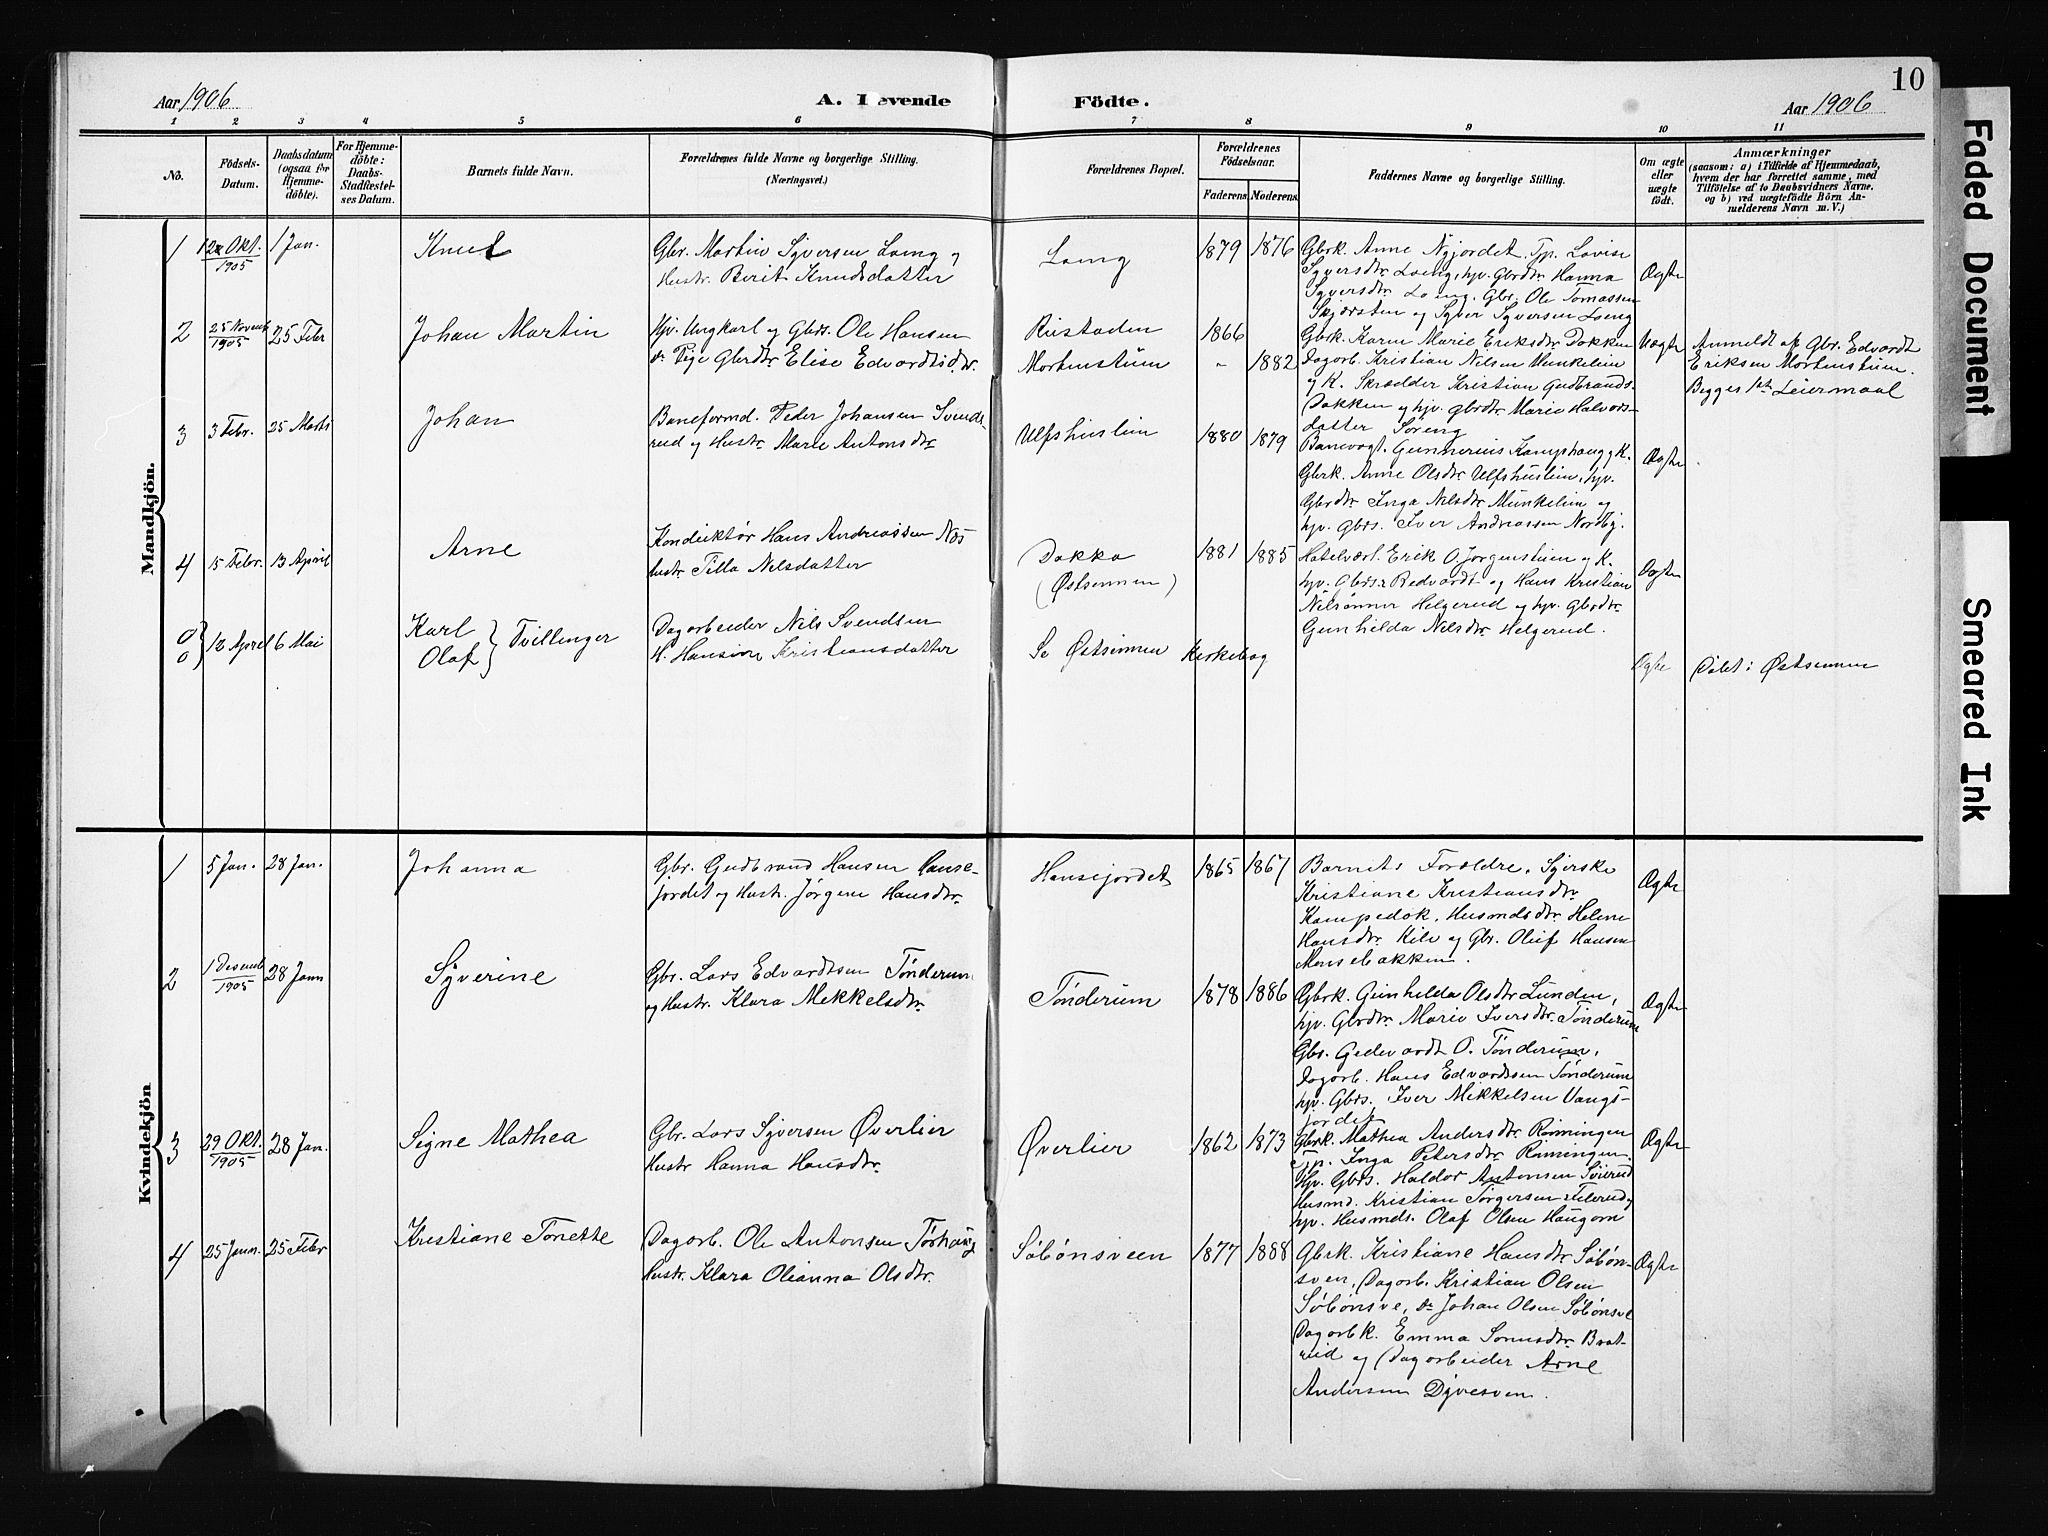 10
Aar 1906
A. Levende
Födte.
Aar 1906
1 2 3 4 5 6 7 8 9 10 11
No.
Födsels-
Datum.
Daabsdatum
(ogsaa for
Hjemme-
döbte).
For Hjemme-
döbte:
Daabs-
Stadfæstel-
ses Datum.
Barnets fulde Navn.
Forældrenes fulde Navne og borgerlige Stilling.
(Næringsvei.)
Forældrenes Bopæl.
Forældrenes
Födselsaar.
Faderens Moderens
Faddernes Navne og borgerlige Stilling.
Om ægte
eller
uægte
födt.
Anmærkninger
(saasom: a) i Tilfælde af Hjemmedaab,
hvem der har forrettet samme, med
Tilföielse af to Daabsvidners Navne.
og b) ved uægtefödte Börn An-
melderens Navn m. V.)
Mandkjön.
1
12 Okt.
1905
1 Jan.
Knut
Gbr. Martin Syversen Loeng og
Hustr. Berit Knudsdatter
Loeng
1879 1876
Gbrk. Anne Nyjordet. Tp. Lovise
Syversdtr Loeng, hjv. Gbrdtr. Hanna
Syversdtr Loeng. Gbr. Ole Tomassen
Skjørsten og Syver Syversen Loeng
Ægte
2
25 Novemb
1905
25 Febr
Johan Martin
Hjv. Ungkarl og Gbrs. Ole Hansen
do Pige Gbrdtr Elise Edvardtsdtr.
Rustaden
Mortenstuen
1866
- 1882
Gbrk. Karen Marie Eriksdtr Dokken
Dagarb. Kristian Nilsen Munkelien
og K. Skrædder Kristian Gudbrands.
Dokken og hjv. gbrdtr. Marie Halvors-
datter Soreng
Uægte
Anmeldt af Gbr. Edvardt
Eriksen Mortenstuen.
Begges 1ste Leiermaal
3
3 Febr.
25 Marts
Johan
Baneformd. Peder Johansen Svends-
rud og Hustr. Marie Antonsdtr
Ulfshuslien
1880 1879
Banevogt. Gunnerius Kamphaug og K.
Gbrk. Anne Olsdtr Ulfshuslien, hjv.
Gbrdtr Inga Nilsdtr Munkelien og
hjv. Gbrs. Iver Andreassen Nordby.
Ægte
4
15 Febr.
13 April
Arne
Konduktør Hans Andreassen Næs
Hustr. Tilla Nelsdatter
Dokka
(Østsinnen)
1881 1885
Hotelvært Erik O. Jorgenstuen og K.
hjv. Gbrs. Redvardt og Hans Kristian
Nilsønner Helgerud og hjv. Gbrdtr.
Gunhilda Nelsdtr. Helgerud.
Ægte
0
0
12 April
6 Mai
Karl
Olaf
Tvillinger
Dagarbeider Nils Svendsen
H. Hansine Kristiansdatter
Se Østsinnen Kirkebog
Ægte
Døbt i Østsinnen
Kvindekjön
1
5 Jan.
28 Jan.
Johanna
Gbr. Gudbrand Hansen Hanse-
jordet og Hustr. Jørgine Hansdtr.
Hansejordet
1865 1867
Barnets Forældre. Syerske
Kristiane Kristiansdtr.
Kampedok, Husmdsdtr. Helene
Hansdtr. Kile og Gbr. Oluf Hansen
Monsebakken.
Ægte
2
1 Desemb
1905
28 Jann
Syverine
Gbr. Lars Edvardtsen Tønderum
og Hustr. Klara Mekkelsdtr.
Tønderum
1878 1886
Gbrk. Gunhilda Olsdtr Lunden,
hjv. Gbrdtr Marie Iversdtr. Tønderum
Gbr. Gedevardt O. Tønderum,
Dagarb. Hans Edvardtsen Tønderum
hjv. Gbrs. Iver Mekkelsen Vangs-
jordet
Ægte
3
29 Okt.
1905
28 Jan.
Signe Mathea
Gbr. Lars Syversen Øverlier
Hustr Hanna Hansdtr.
Øverlier
1862 1873
Gbrk. Mathea Andersdtr. Rønningen
Tp. Inga Petersdtr. Rønningen.
Hjv. Gbrs. Haldor Antonsen
Husmd. Kristian Torgersen og
hjv. Husmds. Olaf Olsen Haugom
Ægte
4
25 Jann.
25 Febr
Kristiane Tonette
Dagarb. Ole Antonsen Torhaug
Hustr. Klara Olianna Olsdtr.
Søbønsveen
1877 1888
Gbrk. Kristiane Hansdtr Søbøn-
sven, Dagarb. Kristian Olsen
Søbønsve, do Johan Olsen Søbønsve
Dagarbk. Emma Brat-
rud og Dagarbeider Arne
Andersen Dyvesven.
Ægte
Faded Document
Smeared Ink